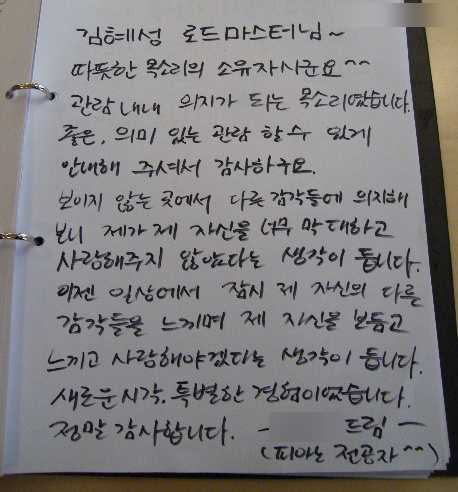 김혜성 로드마스터님~
따뜻한 목소리의 소유자시군요^^
관람내내 의지가 되는 목소리였습니다.
좋은, 의미 있는 관람 할 수 있게
안내해 주셔서 감사하구요.
보이지 않는 곳에서 다른 감각들에 의지해
보니 제가 제 자신을 너무 막대하고
사랑해주지 않았다는 생각이 듭니다.
이젠 일상에서 잠시 제 자신의 다른
감각들을 느끼며 제 자신을 보듬고
느끼고 사랑해야겠다는 생각이 듭니다.
새로운 시각, 특별한 경험이였습니다.
정말 감사합니다. - 드림 -
(피아노 전공자^^)